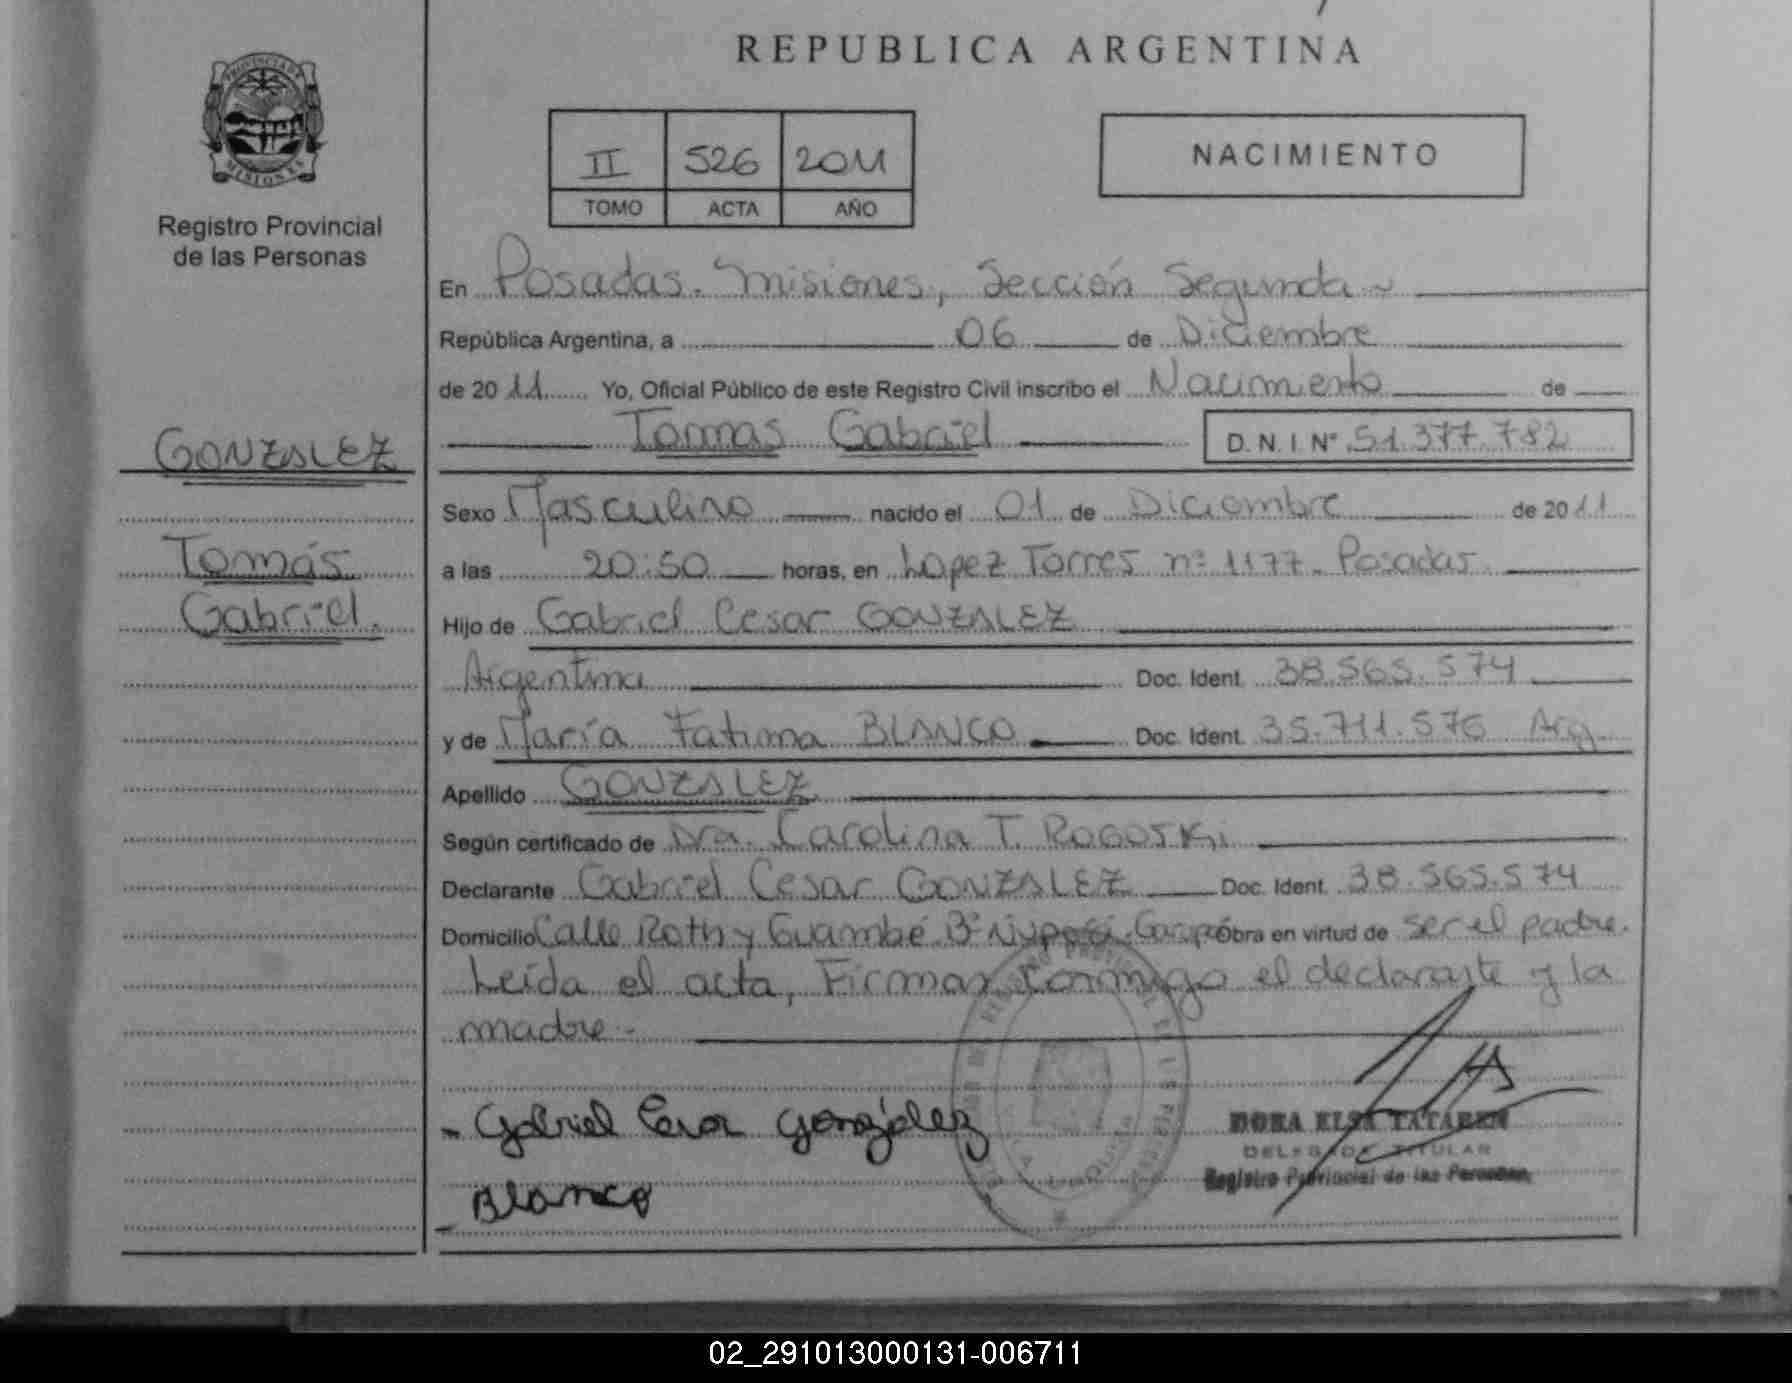 REPUBLICA ARGENTINA
PROVINCIA DE
MISIONES
Registro Provincial
de las Personas
II 526 2011
TOMO ACTA AÑO
NACIMIENTO
En Posadas. Misiones, Sección Segunda
República Argentina, a 06 de Diciembre
de 2011 Yo, Oficial Público de este Registro Civil inscribo el Nacimiento de
Tomas Gabriel D.N.I. Nº 51.377.782
GONZALEZ
Tomás
Gabriel.
Sexo Masculino nacido el 01 de Diciembre de 2011
a las 20:50 horas, en Lopez Torres nº 1177. Posadas.
Hijo de Gabriel Cesar GONZALEZ
Argentina Doc. Ident. 38.565.574
y de María Fatima BLANCO Doc. Ident. 35.711.576 Arg.
Apellido GONZALEZ
Según certificado de Dra. Carolina T. ROGOSKi
Declarante Gabriel Cesar GONZALEZ Doc. Ident. 38.565.574
Domicilio Calle Roth y Guambé Bº Garupá Obra en virtud de ser el padre.
Leída el acta, Firman conmigo el declarante y la
madre.-
- Gabriel Cesar González
- Blanco
DORA ELSA TATAREN
DELEGADA TITULAR
Registro Provincial de las Personas
02_291013000131-006711